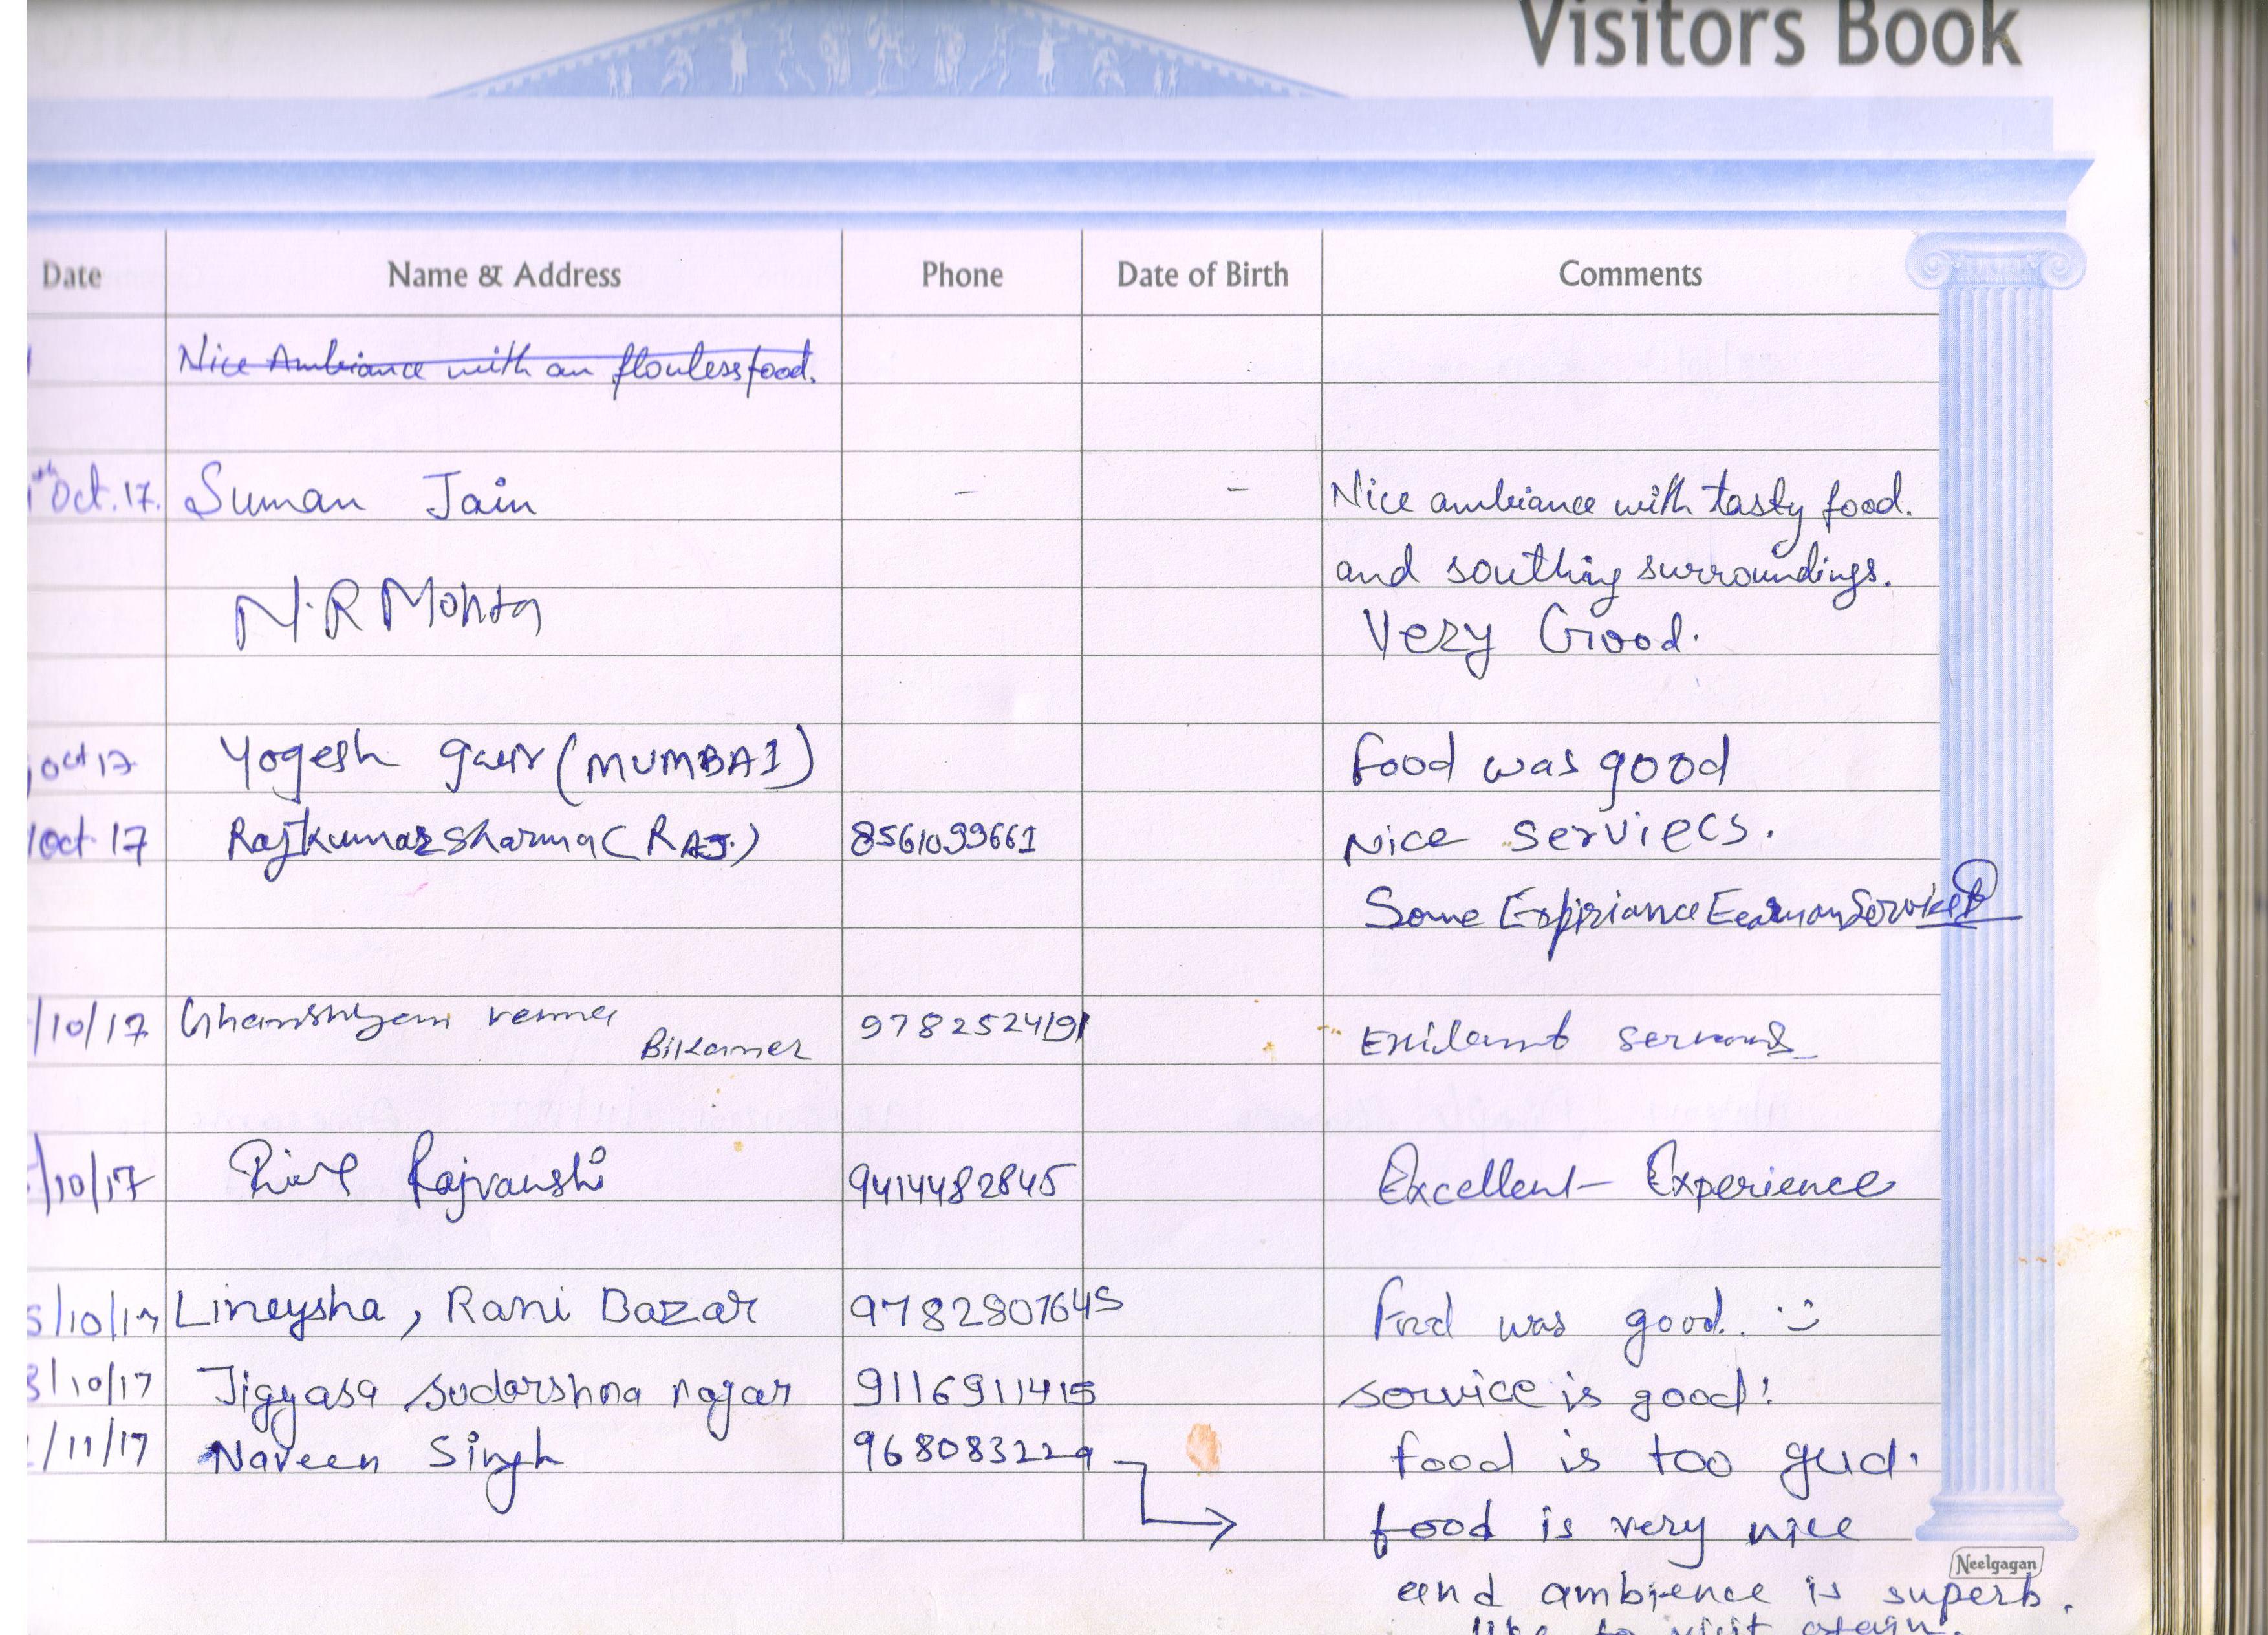 Visitors Book
Date Name & Address Phone Date of Birth Comments
Nice Ambiance with an flowless food.
Oct. 17. Suman Jain - - Nice ambiance with tasty food.
and southing surroundings.
N.R Mohta Very Good.
oct 17 Yogesh gaur (MUMBAI) Food was good
Oct 17 Rajkumar Sharma (RAJ.) 8561099661 Nice serviecs.
Some Expiriance
/10/17 Ghanshyam Bikaner 9782524191
/10/17 Rajvanshi 9414482845 Excellent Experience
/10/17 Lineysha, Rani Bazar 9782807645 Food was good. :)
/10/17 Jigyasa sudarshna nagar 9116911415 service is good!
/11/17 Naveen Singh 968083229 food is too gud.
food is very nice
Neelgagan
and ambience is superb.
like to visit again.